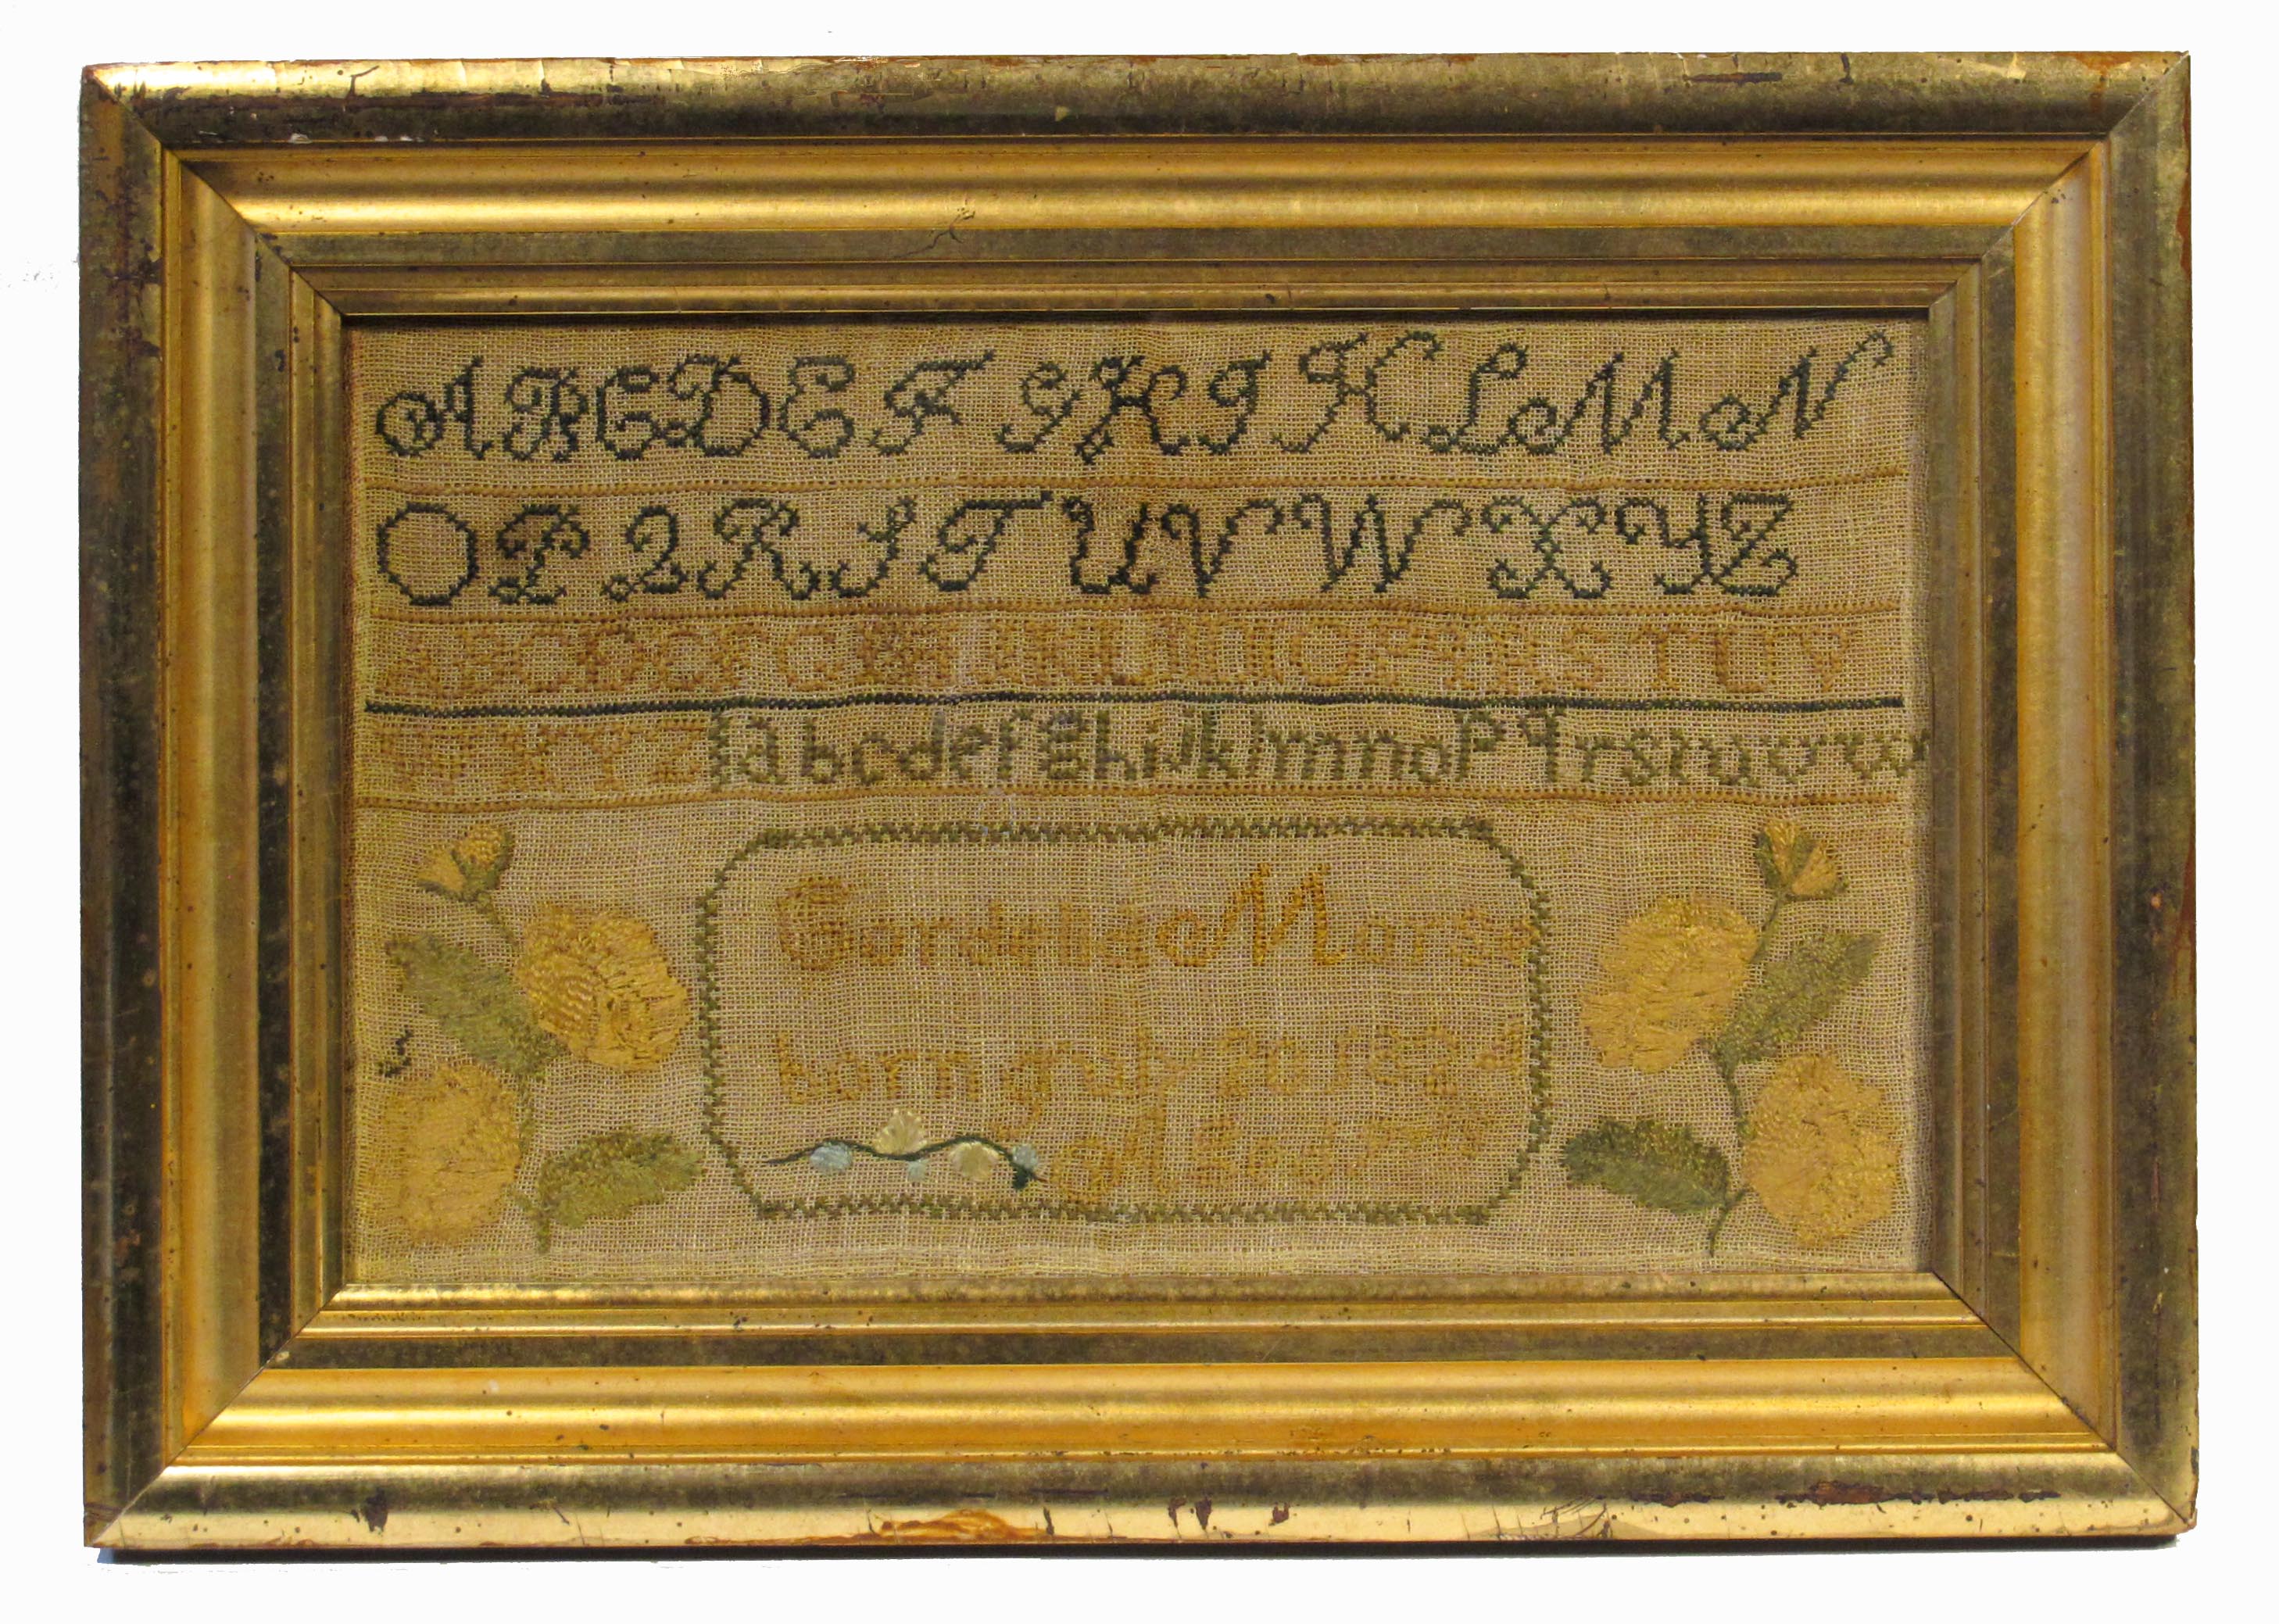 A B C D E F G H I K L M N
O P Q R S T U V W X Y Z
A B C D E F G H I J K L M N O P Q R S T U V
W X Y Z a b c d e f g h i j k l m n o p q r s t u v w
Cordelia Morse
born July